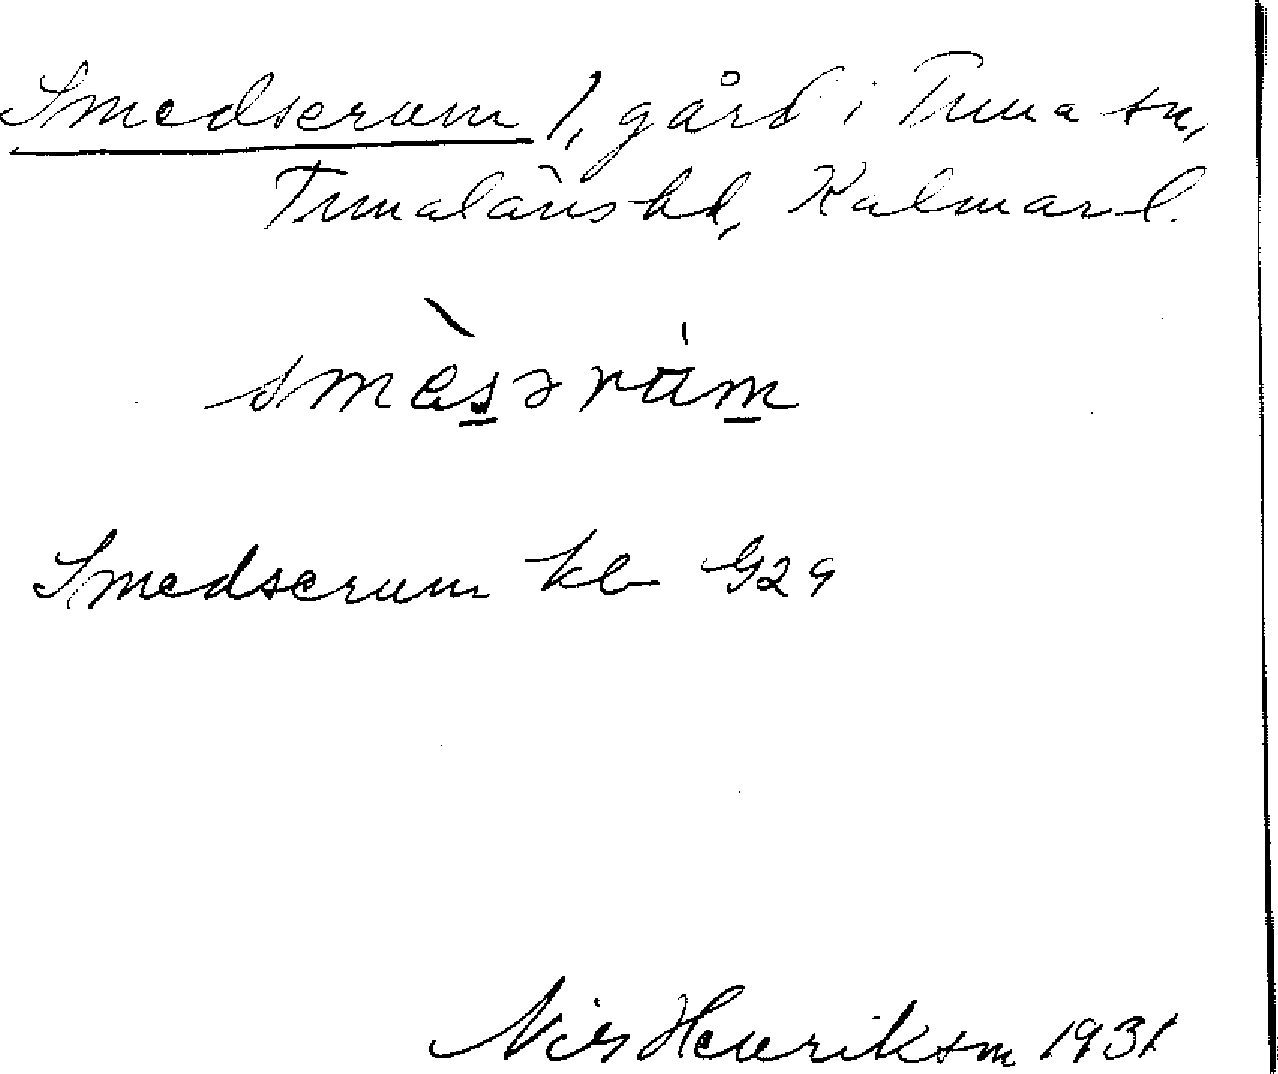 Smedserum 1, gård i Tuna sn,
Tunaläns hd, Kalmar l.
smèsərúm
Smedserum kb G29
Nils Henrikson 1931